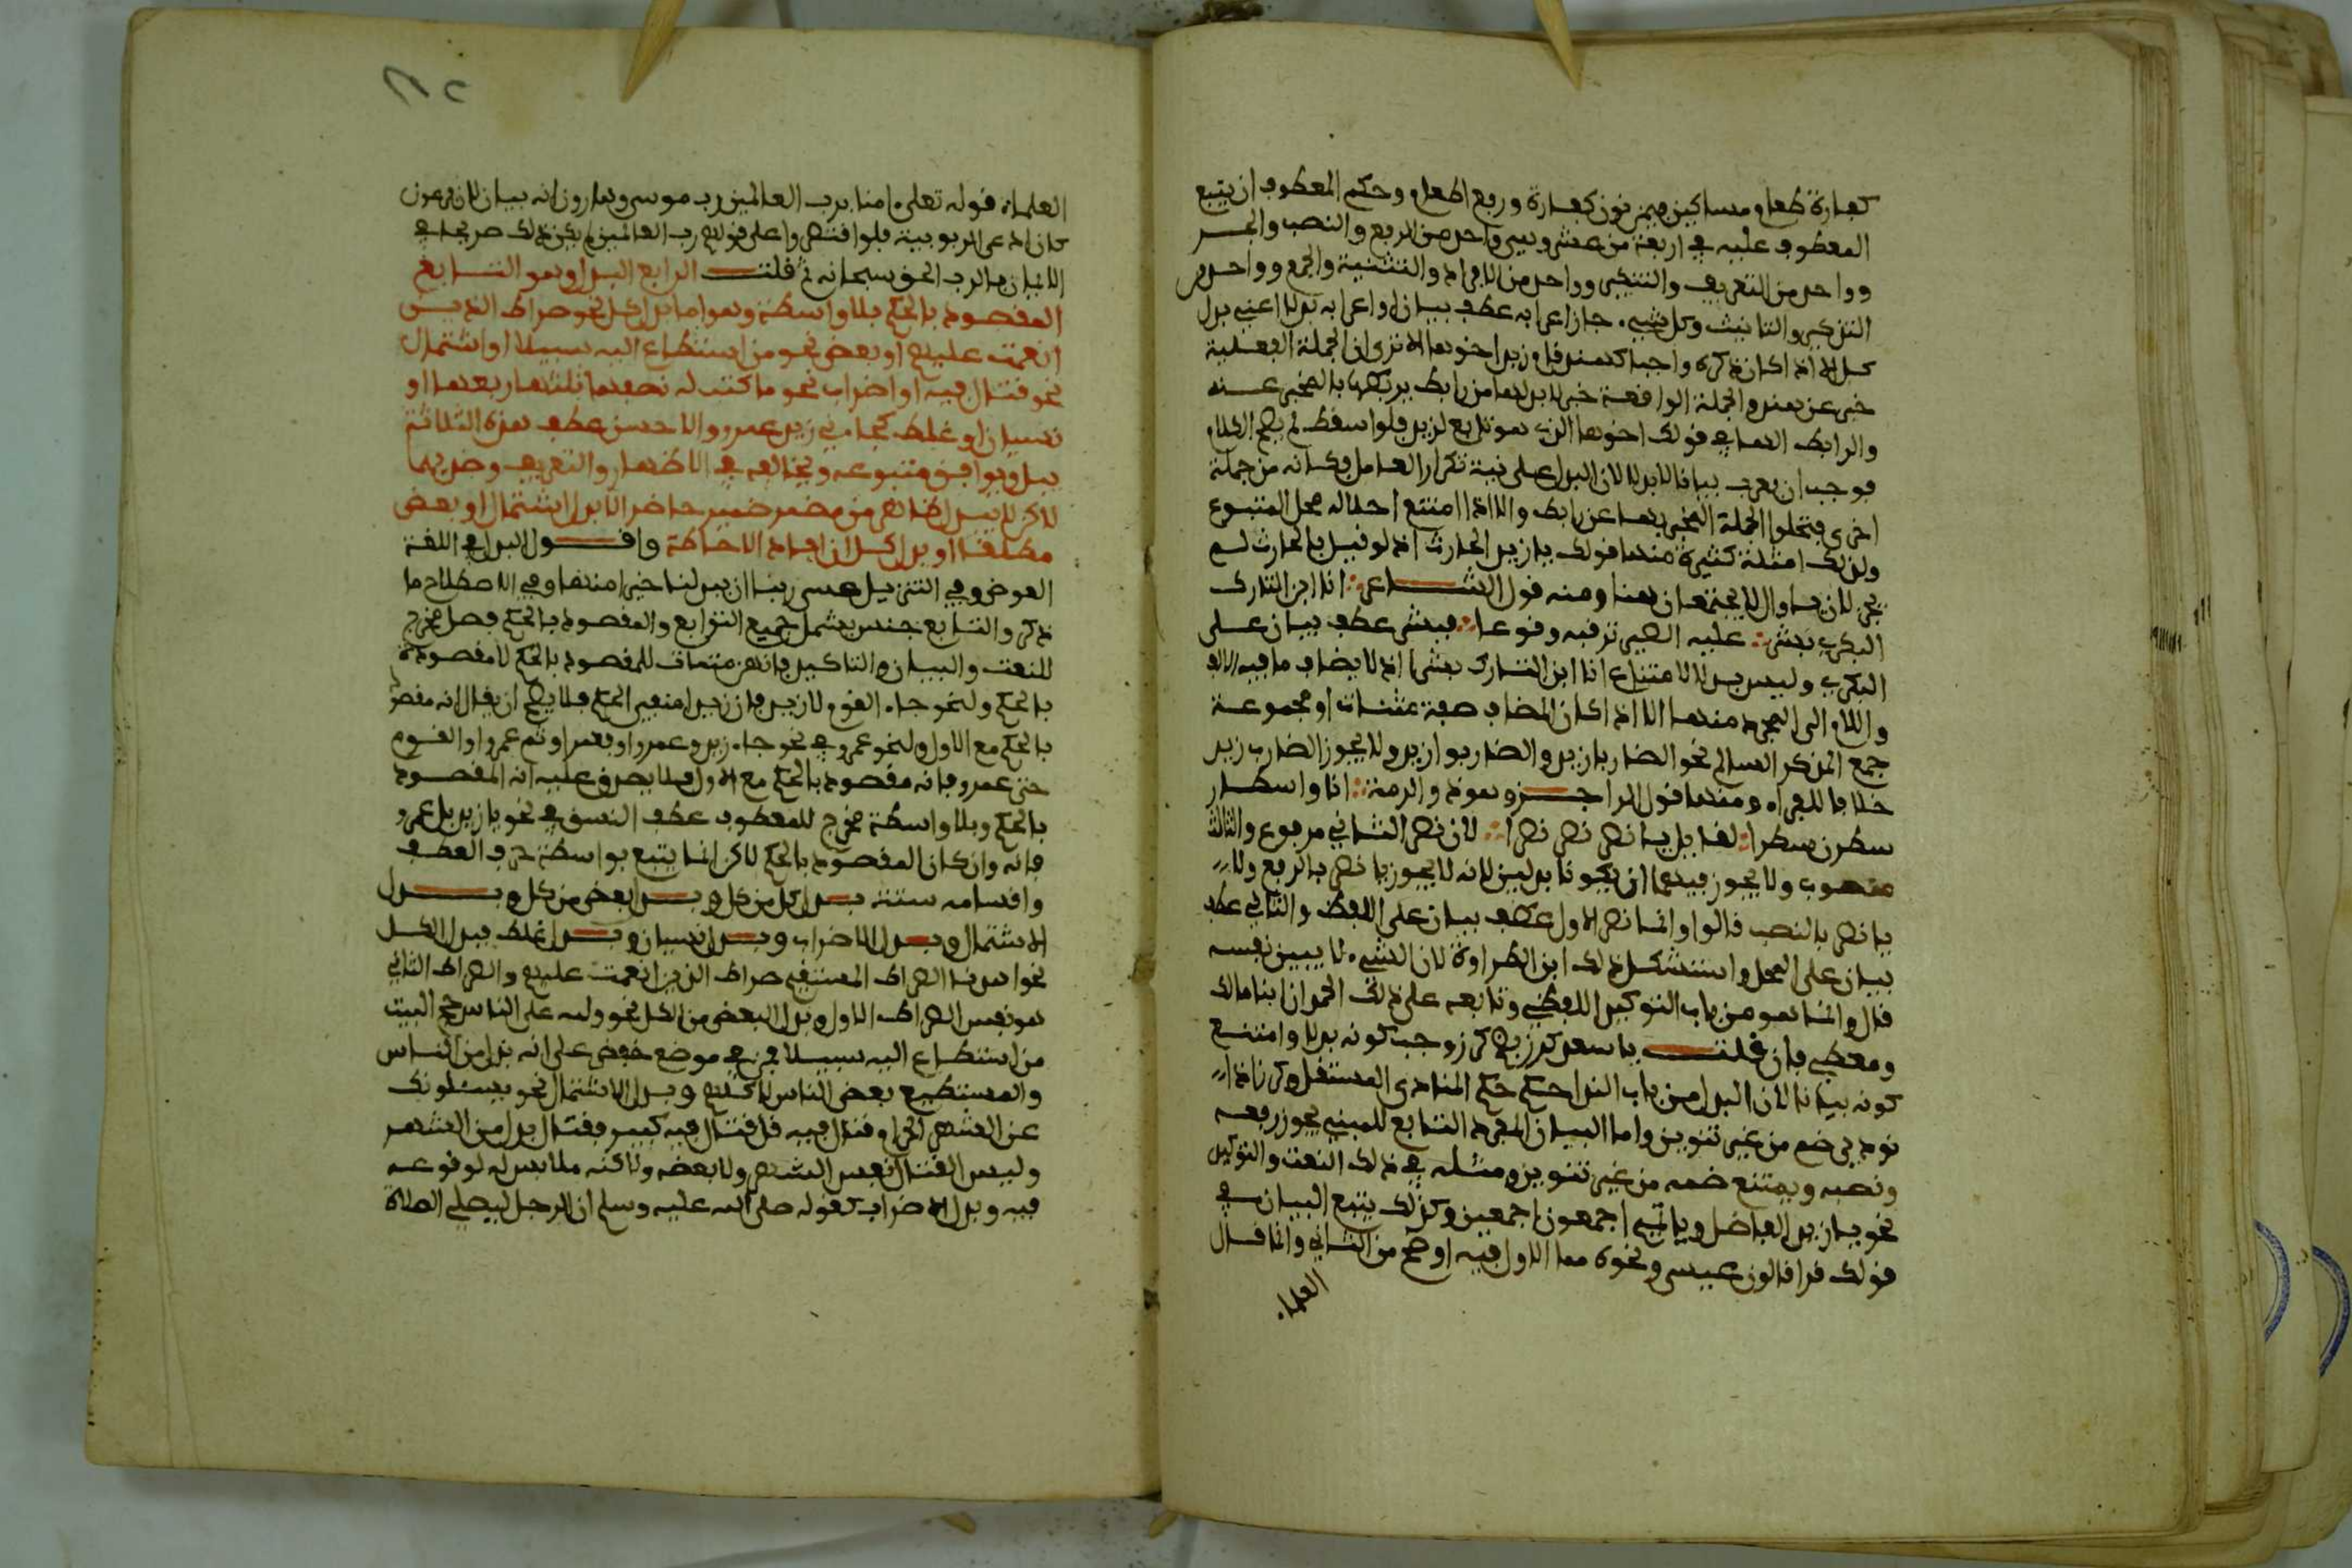 كفارة طعام مساكين فيمن نون كفارة ورفع الطعام وحكم المعطوف ان يتبع
المعطوف عليه في اربعة من عشرة وهي واحد من الرفع والنصب والجر
وواحد من التعريف والتنكير وواحد من الافراد والتثنية والجمع وواحد من
التذكير والتانيث وكل شيء جاز اعرابه عطف بيان جاز اعرابه بدلا اعني بدل
كل الا اذا كان ذكره واجبا كهند قام زيد اخوها الا ترى ان الجملة الفعلية
خبر عن هند والجملة الواقعة خبرا لا بد لها من رابط يربطها بالمخبر عنه
والرابط الهاء في قولك اخوها الذي هو تابع لزيد فلو اسقط لم يصح الكلام
فوجب ان يعرب بيانا لا بدلا لان البدل على نية تكرار العامل فكانه من جملة
اخرى فتخلوا الجملة المخبر بها عن رابط والا اذا امتنع احلاله محل المتبوع
ولذلك امثلة كثيرة منها قولك يا زيد الحارث اذ لو قيل يا الحارث لم
يجز لان يا وال لا يجتمعان هنا ومنه قول الشاعر ∴ انا ابن التارك
البكري بشر ∴ عليه الطير ترقبه وقوعا ∴ فبشر عطف بيان على
البكري وليس بدلا لامتناع انا ابن التارك بشر اذ لا يضاف ما فيه الالف
واللام الى المجرد منها الا اذا كان المضاف صفة مثناة او مجموعة
جمع المذكر السالم نحو الضاربا زيد والضاربو زيد ولا يجوز الضارب زيد
خلافا للفراء ومنها قول الراجز وهو ذو الرمة ∴ انا واسطار
سطرن سطرا ∴ لقايل يا نصر نصر نصرا ∴ لان نصر الثاني مرفوع والثالث
منصوب ولا يجوز فيهما ان يكونا بدلين لانه لا يجوز يا نصر بالرفع ولا
يا نصر بالنصب قالوا وانما نصر الاول عطف بيان على اللفظ والثاني عطف
بيان على المحل واستشكل ذلك ابن الطراوة لان الشيء لا يبين نفسه
قال وانما هو من باب التوكيد اللفظي وتابعه على ذلك المحمدان ابنا مالك
ومعطي فان قلت يا سعيد كرز بضم كرز وجب كونه بدلا وامتنع
كونه بيانا لان البدل من باب النداء حكمه حكم المنادى المستقل وكرز اذا
نودي ضم من غير تنوين واما البيان المفرد التابع للمبني يجوز رفعه
ونصبه ويمتنع ضمه من غير تنوين ومثله في ذلك النعت والتوكيد
نحو يا زيد الفاضل ويا تميم اجمعون اجمعين وكذلك يتبع البيان في
قولك قرا قالون عيسى ونحوه مما الاول فيه اوضح من الثاني وانما قال
العلماء
العلماء قوله تعلى ءامنا برب العالمين رب موسى وهارون انه بيان لان فرعون
كان ادعى الربوبية فلو اقتصروا على قولهم رب العالمين لم يكن ذلك صريحا في
الايمان بالرب الحق سبحانه ثم قلت الرابع البدل وهو التابع
المقصود بالحكم بلا واسطة وهو اما بدل كل نحو صراط الذين
انعمت عليهم او بعض نحو من استطاع اليه سبيلا او اشتمال
نحو قتال فيه او اضراب نحو ما كتب له نصفها ثلثها ربعها او
نسيان او غلط كجاءني زيد عمرو والاحسن عطف هذه الثلاثة
ببل ويوافق متبوعه ويخالفه في الاظهار والتعريف وضدهما
لاكن لا يبدل ظاهر من مضمر ضمير حاضر الا بدل اشتمال او بعض
مطلقا او بدل كل ان افاد الاحاطة واقول البدل في اللغة
العوض وفي التنزيل عسى ربنا ان يبدلنا خيرا منها وفي الاصطلاح ما
ذكر والتابع جنس يشمل جميع التوابع والمقصود بالحكم فصل مخرج
للنعت والبيان والتاكيد فانهن متممات للمقصود بالحكم لا مقصودة
بالحكم ولنحو جاء القوم لا زيد فان زيدا منفي الحكم فلا يصح ان يقال انه مقصود
بالحكم مع الاول ولنحو عمرو في نحو جاء زيد وعمرو او فعمرو او ثم عمرو او القوم
حتى عمرو فانه مقصود بالحكم مع الاول فلا يصدق عليه انه المقصود
بالحكم وبلا واسطة مخرج للمعطوف عطف النسق في نحو جاء زيد بل عمرو
فانه وان كان المقصود بالحكم لاكن انما يتبع بواسطة حرف العطف
واقسامه ستة بدل كل من كل وبدل بعض من كل وبدل
الاشتمال وبدل الاضراب وبدل نسيان وبدل غلط فبدل الكل
نحو اهدنا الصراط المستقيم صراط الذين انعمت عليهم والصراط الثاني
هو نفس الصراط الاول وبدل البعض من الكل نحو ولله على الناس حج البيت
من استطاع اليه سبيلا فمن في موضع خفض على انه بدل من الناس
والمستطيع بعض الناس لا كلهم وبدل الاشتمال نحو يسئلونك
عن الشهر الحرام قتال فيه قل قتال فيه كبير فقتال بدل من الشهر
وليس القتال نفس الشهر ولا بعضه ولاكنه ملابس له لوقوعه
فيه وبدل الاضراب كقوله صلى الله عليه وسلم ان الرجل ليصلي الصلاة